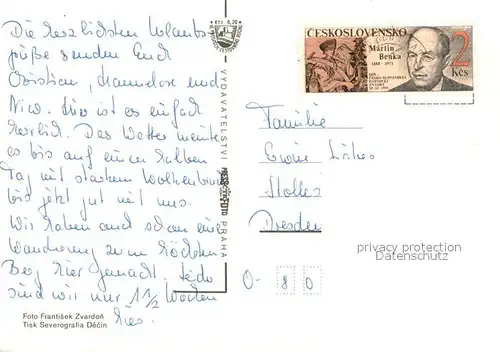 Die herzlichsten Urlaubs-
grüße senden Euch
Christian, Hannelore und
Nico. Hier ist es einfach
herrlich. Das Wetter meinte
es bis auf einen halben
Tag mit starkem Wolkenbruch
bis jetzt gut mit uns.
Wir haben auch schon eine
Wanderung zum höchsten
Berg hier gemacht. Leider
sind wir nur 1 1/2 Wochen
hier.
Foto František Zvardoň
Tisk Severografia Děčín
Kčs 0,20
VYDAVATELSTVÍ PRAHA
ČESKOSLOVENSKO
Martin
Benka
1888 - 1971
DEN
ČESKOSLOVENSKÉ
POŠTOVNÍ
ZNÁMKY
2
Kčs
Familie
Erwin
Dresden
privacy protection
Datenschutz
O-
8 0